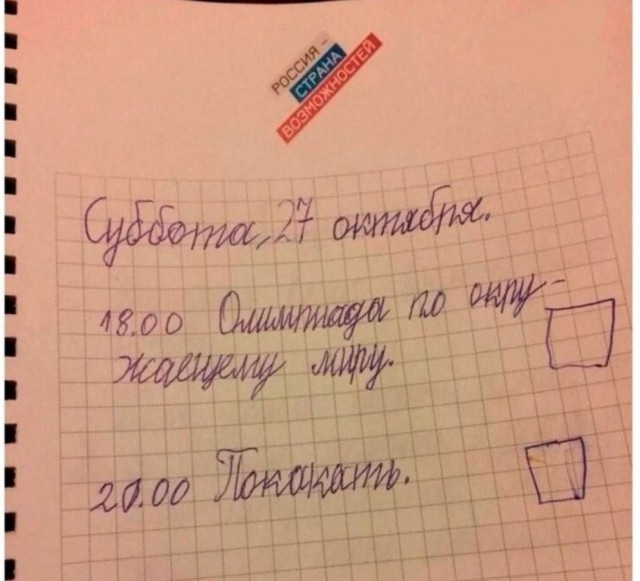 РОССИЯ -
СТРАНА
ВОЗМОЖНОСТЕЙ
Суббота, 27 октября.
18.00 Олимпиада по окру-
жаещему миру.
20.00 Покакать.